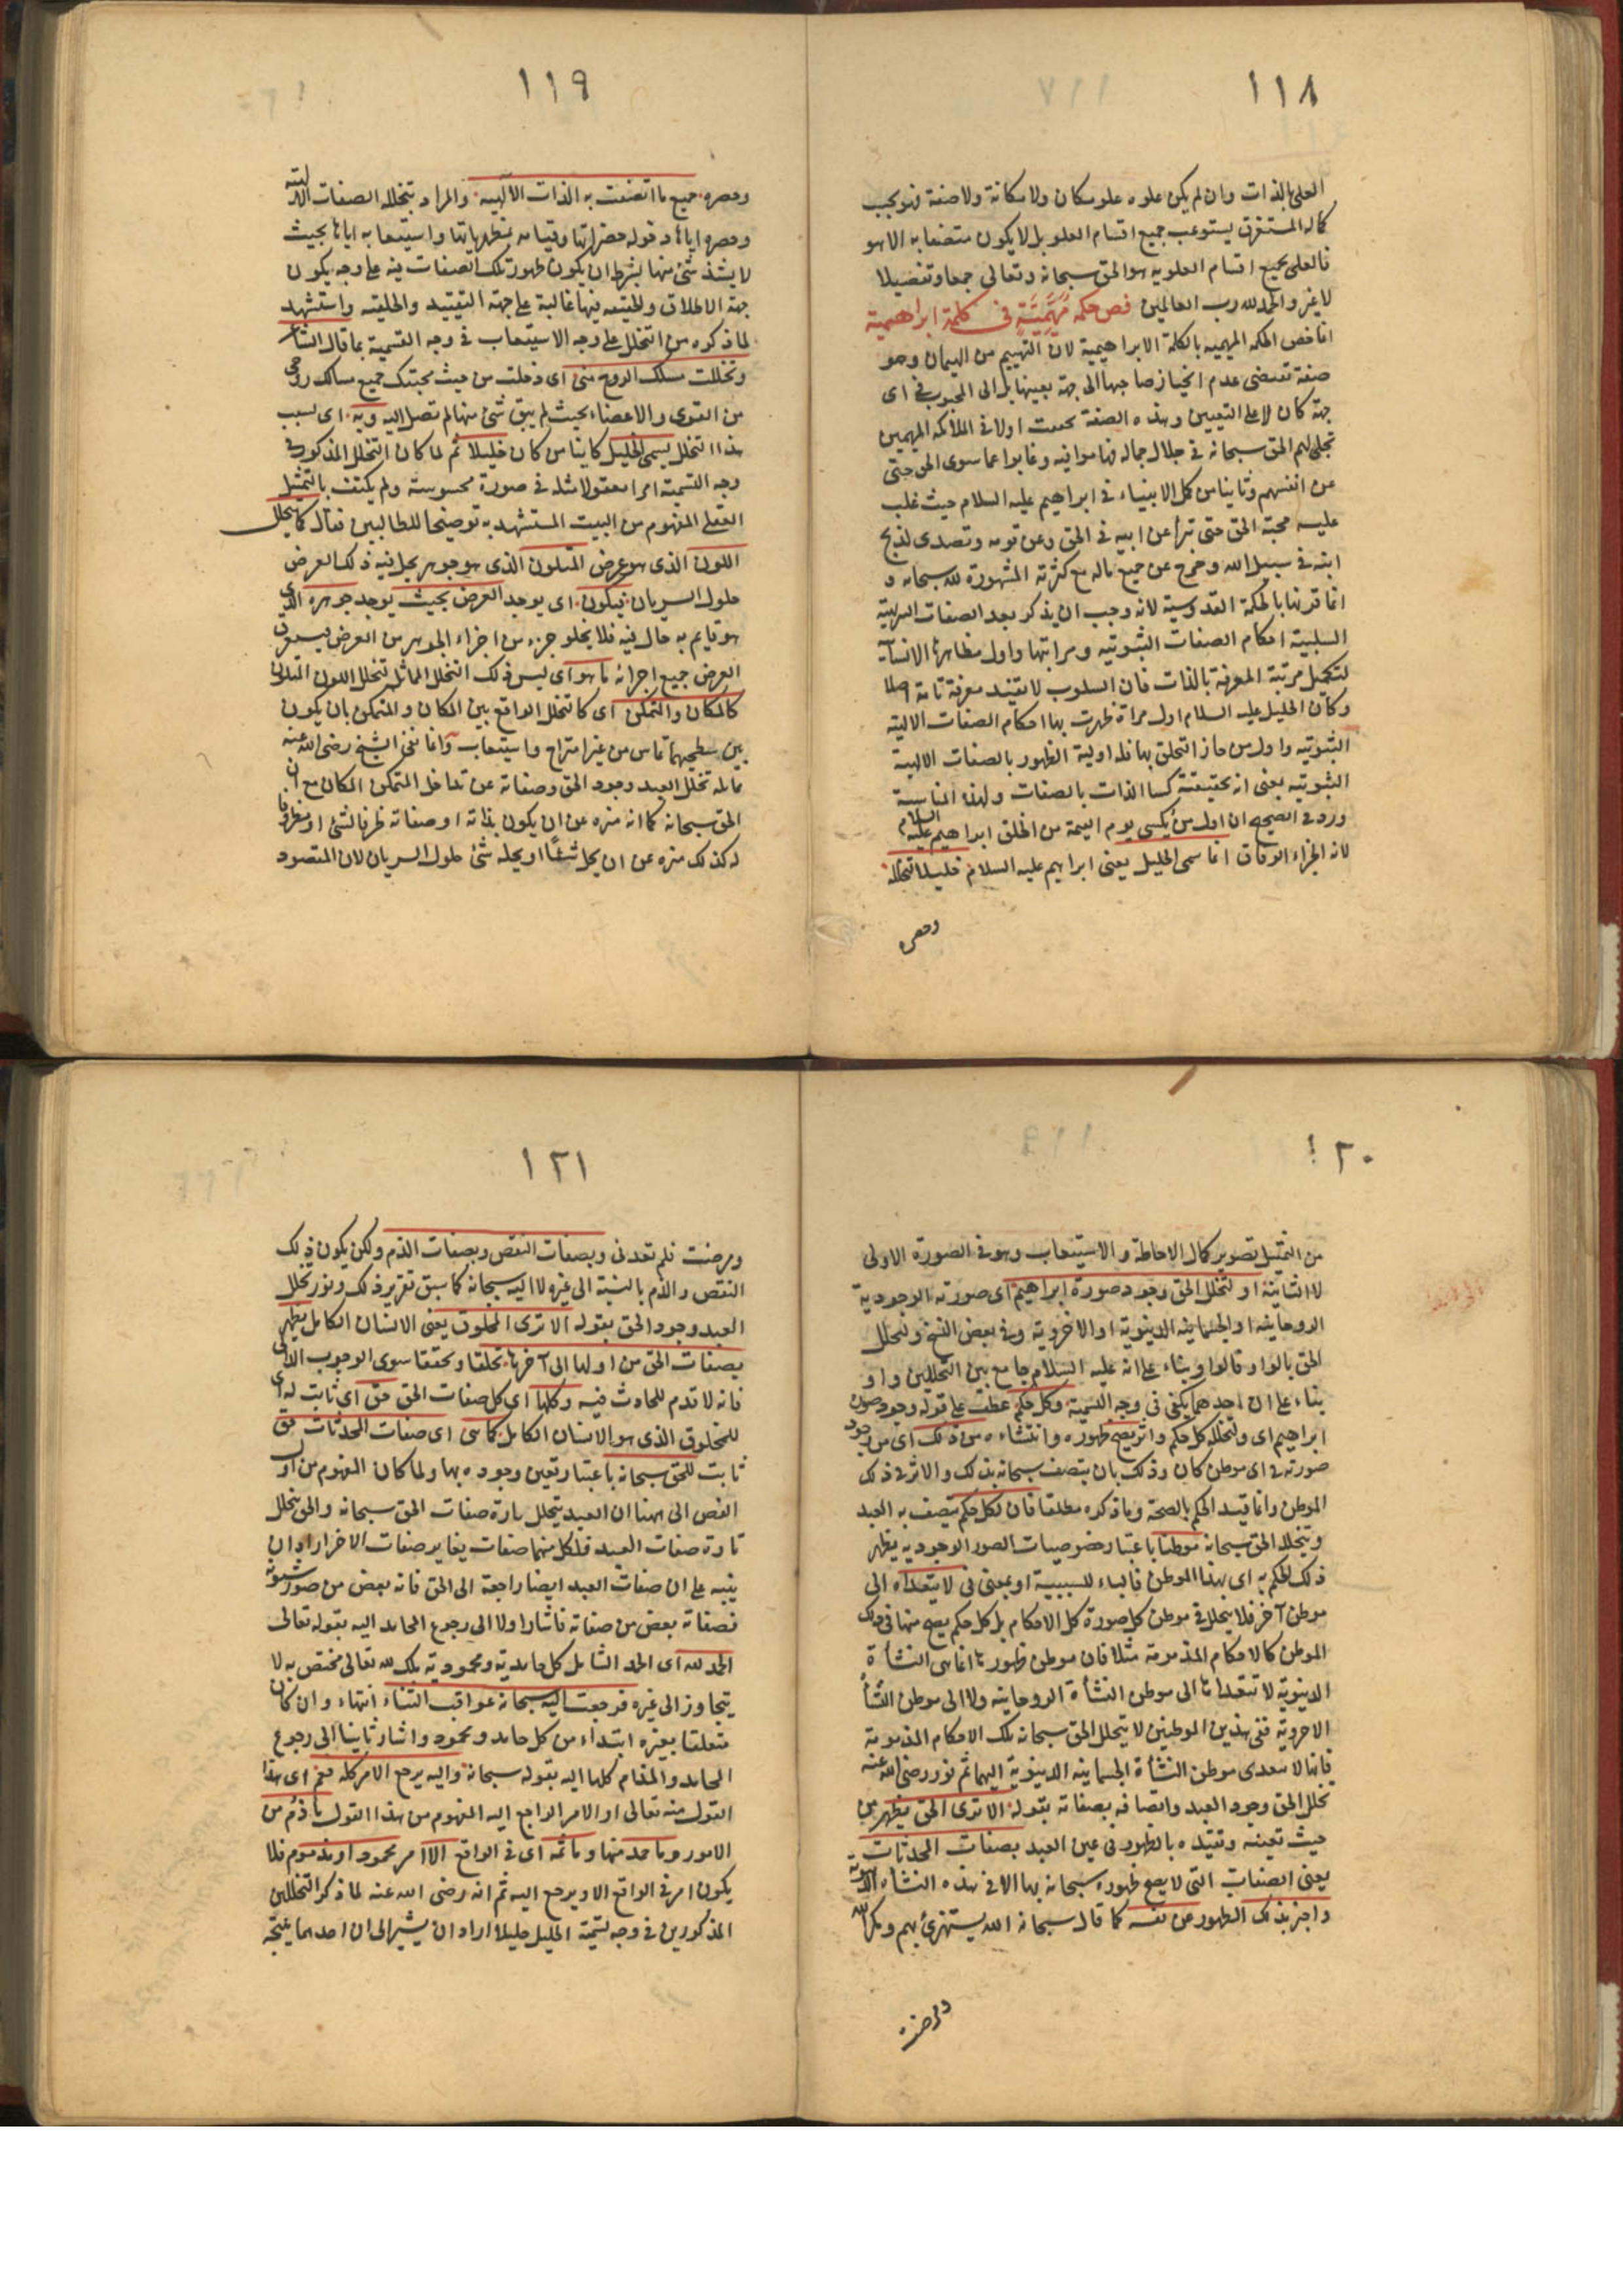 ١١٨
العلى بالذات وان لم يكن علوه علو مكان ولا مكانة ولا صفة فهو بحيب
كماله المستغرق يستوعب جميع اقسام العلو بل لا يكون متصفا به الا هو
فالعلى بجميع اقسام العلويه هو الحق سبحانه وتعالى جمعا وتفصيلا
لا غير والحمد لله رب العالمين فص حكمة مهيمية فى كلمة ابراهيمية
انما خص الحكمه المهيميه بالكلمة الابراهيمية لان التهييم من الهيمان وهو
صفة تقتضى عدم انحياز صاحبها الى جهة بعينها بل الى المحبوب فى اى
جهة كان لا على التعيين وهذه الصفة تحققت اولا فى الملائكه المهيمين
تجلى لهم الحق سبحانه فى جلال جماله فهاموا فيه وغابوا عما سوى الحق حتى
عن انفسهم وثانيا من كمل الانبياء فى ابراهيم عليه السلام حيث غلب
عليه محبة الحق حتى تبرأ عن ابيه فى الحق وعن قومه وتصدى لذبح
ابنه فى سبيل الله وخرج عن جميع ماله مع كثرته المشهورة لله سبحانه و
انما قرنها بالحكمة القدوسية لانه وجب ان يذكر بعد الصفات التنزيهية
السلبية احكام الصفات الثبوتيه ومراتبها واول مظاهرها الانسانية
لتكميل مرتبة المعرفة بالذات فان السلوب لا تفيد معرفة تامة اصلا
وكان الخليل عليه السلام اول مرآة ظهرت بها احكام الصفات الالهية
الثبوتيه واول من حاز التخلق بها فله اولية الظهور بالصفات الالهية
الثبوتيه بمعنى انه بحقيقته كسا الذات بالصفات ولهذه المناسبة
ورد فى الصحيح ان اول من يكسى يوم القيمة من الخلق ابراهيم عليه السلام
لانه الجزاء الوفاق انما سمى الخليل يعنى ابراهيم عليه السلام خليلا لتخلله
وحصره
١١٩
وحصره جميع ما اتصفت به الذات الالهيه والمراد بتخلله الصفات الالهية
وحصره اياها دخوله حضراتها وقيامه بمظهرياتها واستيعابه اياها بحيث
لا يشذ شئ منها بشرط ان يكون ظهور تلك الصفات فيه على وجه يكون
جهة الاطلاق والحقيه فيها غالبة على جهة التقييد والخلقيه واستشهد
لما ذكره من التخلل على وجه الاستيعاب فى وجه التسمية بما قال الشاعر
وتخللت مسلك الروح منى اى دخلت من حيث محبتك جميع مسالك روحى
من القوى والاعضاء بحيث لم يبق شئ منها لم تصل اليه وبه اى بسبب
هذا التخلل يسمى الخليل كاينا من كان خليلا ثم لما كان التخلل المذكور فى
وجه التسمية امرا معقولا مثله فى صورة محسوسة ولم يكتف بالتمثيل
العقلى المفهوم من البيت المستشهد به توضيحا للطالبين فقال كما يتخلل
اللون الذى هو عرض المتلون الذى هو جوهر يحل فيه ذلك العرض
حلول السريان فيكون اى يوجد العرض بحيث يوجد جوهره الذى
هو قايم به حال فيه فلا يخلو جزء من اجزاء الجوهر من العرض فيستغرق
العرض جميع اجزائه ما هو اى ليس ذلك التخلل الماثل تخلل اللون المتلون
كالمكان والتمكن اى كالتخلل الواقع بين المكان والمتمكن بان يكون
بين سطحيهما تماس من غير امتزاج واستيعاب وانما نفى الشيخ رضى الله عنه
مماثلة تخلل العبد وجود الحق وصفاته عن تداخل المتمكن المكان مع ان
الحق سبحانه كما انه منزه عن ان يكون بذاته او صفاته ظرفا لشئ او مظروفا
له كذلك منزه عن ان يحل شئا او يحله شئ حلول السريان لان المقصود
١٢٠
من التمثيل تصوير كمال الاحاطة والاستيعاب وهو فى الصورة الاولى
لا الثانية او لتخلل الحق وجود صورة ابراهيم اى صورته الوجودية
الروحانيه او الجسمانيه الدينويه او الاخرويه وفى بعض النسخ ولتخلل
الحق بالواو فالواو بناء على انه عليه السلام جامع بين التخللين واو
بناء على ان احدهما يكفى فى وجه التسمية وكل حكم عطف على قوله وجود صورة
ابراهيم اى ولتخلله كل حكم واثر يصح ظهوره وانتشاءه من ذلك اى من وجود
صورته فى اى موطن كان وذلك بان يتصف سبحانه بذلك والاثر فى ذلك
الموطن وانما قيد الحكم بالصحة وما ذكره مطلقا فان لكل حكم يتصف به العبد
ويتخلله الحق سبحانه موطنا باعتبار خصوصيات الصور الوجوديه يظهر
ذلك الحكم به اى بهذا الموطن فالباء للسببية او بمعنى فى لا يتعداه الى
موطن آخر فلا يتخلل فى موطن كل صورة كل الاحكام بل كل حكم يصح منها فى ذلك
الموطن كالاحكام المذمومة مثلا فان موطن ظهورها انما هى النشأة
الدينوية لا تتعداها الى موطن النشأة الروحانيه ولا الى موطن النشأة
الاخروية ففى هذين الموطنين لا يتخلل الحق سبحانه بتلك الاحكام المذمومة
فانها لا تتعدى موطن النشأة الجسمانيه الدينوية اليهما ثم نور رضى الله عنه
تخلل الحق وجود العبد واتصافه بصفاته بقوله الا ترى الحق يظهر من
حيث تعينه وتقيده بالظهور فى عين العبد بصفات المحدثات
يعنى الصفات التى لا يصح ظهوره سبحانه بها الا فى هذه النشاءة الدنيوية
واخبر بذلك الظهور عن نفسه كما قال سبحانه الله يستهزئ بهم ومكر الله
ومرضت
١٢١
ومرضت فلم تعدنى وبصفات النقص وبصفات الذم ولكن يكون ذلك
النقص والذم بالنسبة الى غيره لا اليه سبحانه كما سبق تقرير ذلك ونور تخلل
العبد وجود الحق بقوله الا ترى المخلوق يعنى الانسان الكامل يظهر
بصفات الحق من اولها الى آخرها تخلقا وتحققا سوى الوجوب الذاتى
فانه لا قدم للحادث فيه وكلها اى كل صفات الحق حق اى ثابت له اى
للمخلوق الذى هو الانسان الكامل كما هى اى صفات المحدثات حق
ثابت للحق سبحانه باعتبار تعين وجوده بها ولما كان المفهوم من اول
الفص الى ههنا ان العبد يتخلل تارة صفات الحق سبحانه والحق يتخلل
تارة صفات العبد فلكل منهما صفات يغاير صفات الاخر اراد ان
ينبه على ان صفات العبد ايضا راجعة الى الحق فانه بعض من صور شئونه
فصفاته بعض من صفاته فاشار اولا الى رجوع المحامد اليه بقوله تعالى
الحمد لله اى الحمد الشامل كل حامدية ومحمودية ملك لله تعالى مختص به لا
يتجاوز الى غيره فرجعت اليه سبحانه عواقب الثناء انتهاء وان كان
متعلقا بغيره ابتداء من كل حامد ومحمود واشار ثانيا الى رجوع
المحامد والمذام كلها اليه بقوله سبحانه واليه يرجع الامر كله فعم اى هذا
القول منه تعالى او الامر الراجع اليه المفهوم من هذا القول ما ذم من
الامور وما حمد منها وما ثمه اى فى الواقع الا امر محمود او مذموم فلا
يكون امر فى الواقع الا ويرجع اليه ثم انه رضى الله عنه لما ذكر التخللين
المذكورين فى وجه تسمية الخليل خليلا اراد ان يشير الى ان احدهما نتيجة